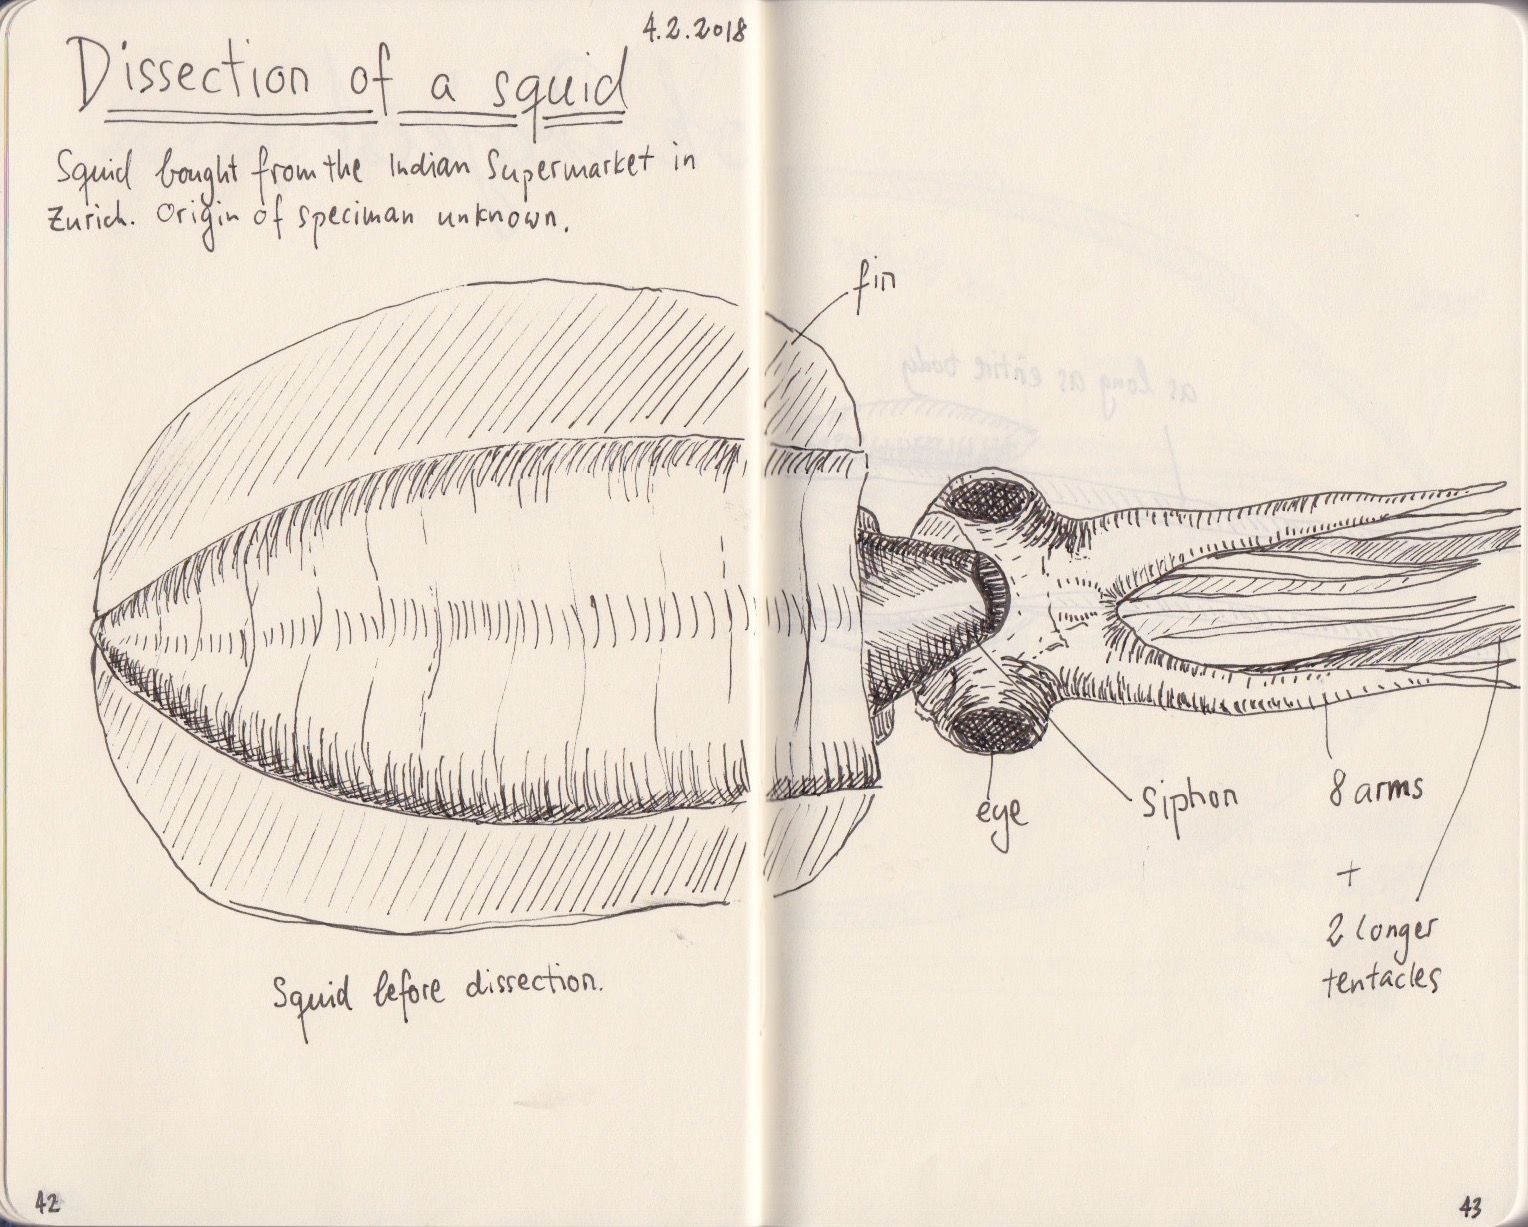 4.2.2018
Dissection of a squid
Squid bought from the Indian Supermarket in
Zurich. Origin of speciman unknown.
fin
as long as entire body
eye
siphon
8 arms
+
2 longer
tentacles
Squid before dissection.
42
43